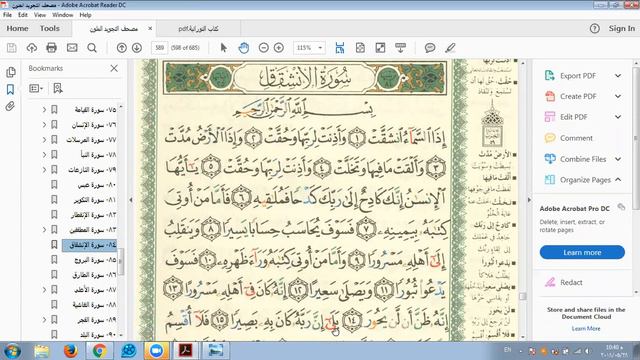 مصحف التجويد الملون - Adobe Acrobat Reader DC
File Edit View Window Help
Home Tools
مصحف التجويد الملون
كتاب النورانية.pdf
Sign In
589 (598 of 685)
115%
Bookmarks
٠٧٥ سورة القيامة
٠٧٦ سورة الإنسان
٠٧٧ سورة المرسلات
٠٧٨ سورة النبأ
٠٧٩ سورة النازعات
٠٨٠ سورة عبس
٠٨١ سورة التكوير
٠٨٢ سورة الإنفطار
٠٨٣ سورة المطففين
٠٨٤ سورة الإنشقاق
٠٨٥ سورة البروج
٠٨٦ سورة الطارق
٠٨٧ سورة الأعلى
٠٨٨ سورة الغاشية
٠٨٩ سورة الفجر
٠٩٠ سورة البلد
سُورَةُ الانْشِقَاقِ
بِسْمِ اللَّهِ الرَّحْمَٰنِ الرَّحِيمِ
إِذَا السَّمَاءُ انشَقَّتْ ١ وَأَذِنَتْ لِرَبِّهَا وَحُقَّتْ ٢ وَإِذَا الْأَرْضُ مُدَّتْ
٣ وَأَلْقَتْ مَا فِيهَا وَتَخَلَّتْ ٤ وَأَذِنَتْ لِرَبِّهَا وَحُقَّتْ ٥ يَٰأَيُّهَا
الْإِنسَٰنُ إِنَّكَ كَادِحٌ إِلَىٰ رَبِّكَ كَدْحًا فَمُلَٰقِيهِ ٦ فَأَمَّا مَنْ أُوتِيَ
كِتَٰبَهُ بِيَمِينِهِ ٧ فَسَوْفَ يُحَاسَبُ حِسَابًا يَسِيرًا ٨ وَيَنقَلِبُ
إِلَىٰ أَهْلِهِ مَسْرُورًا ٩ وَأَمَّا مَنْ أُوتِيَ كِتَٰبَهُ وَرَاءَ ظَهْرِهِ ١٠ فَسَوْفَ
يَدْعُوا ثُبُورًا ١١ وَيَصْلَىٰ سَعِيرًا ١٢ إِنَّهُ كَانَ فِي أَهْلِهِ مَسْرُورًا ١٣
إِنَّهُ ظَنَّ أَن لَّن يَحُورَ ١٤ بَلَىٰ إِنَّ رَبَّهُ كَانَ بِهِ بَصِيرًا ١٥ فَلَا أُقْسِمُ
الأرض مدت
ألقت ما فيها
تخلت
Export PDF
Create PDF
Edit PDF
Comment
Combine Files
Organize Pages
Adobe Acrobat Pro DC
Delete, insert, extract, or rotate pages
Learn more
Redact
Store and share files in the Document Cloud
Learn More
EN
10:40